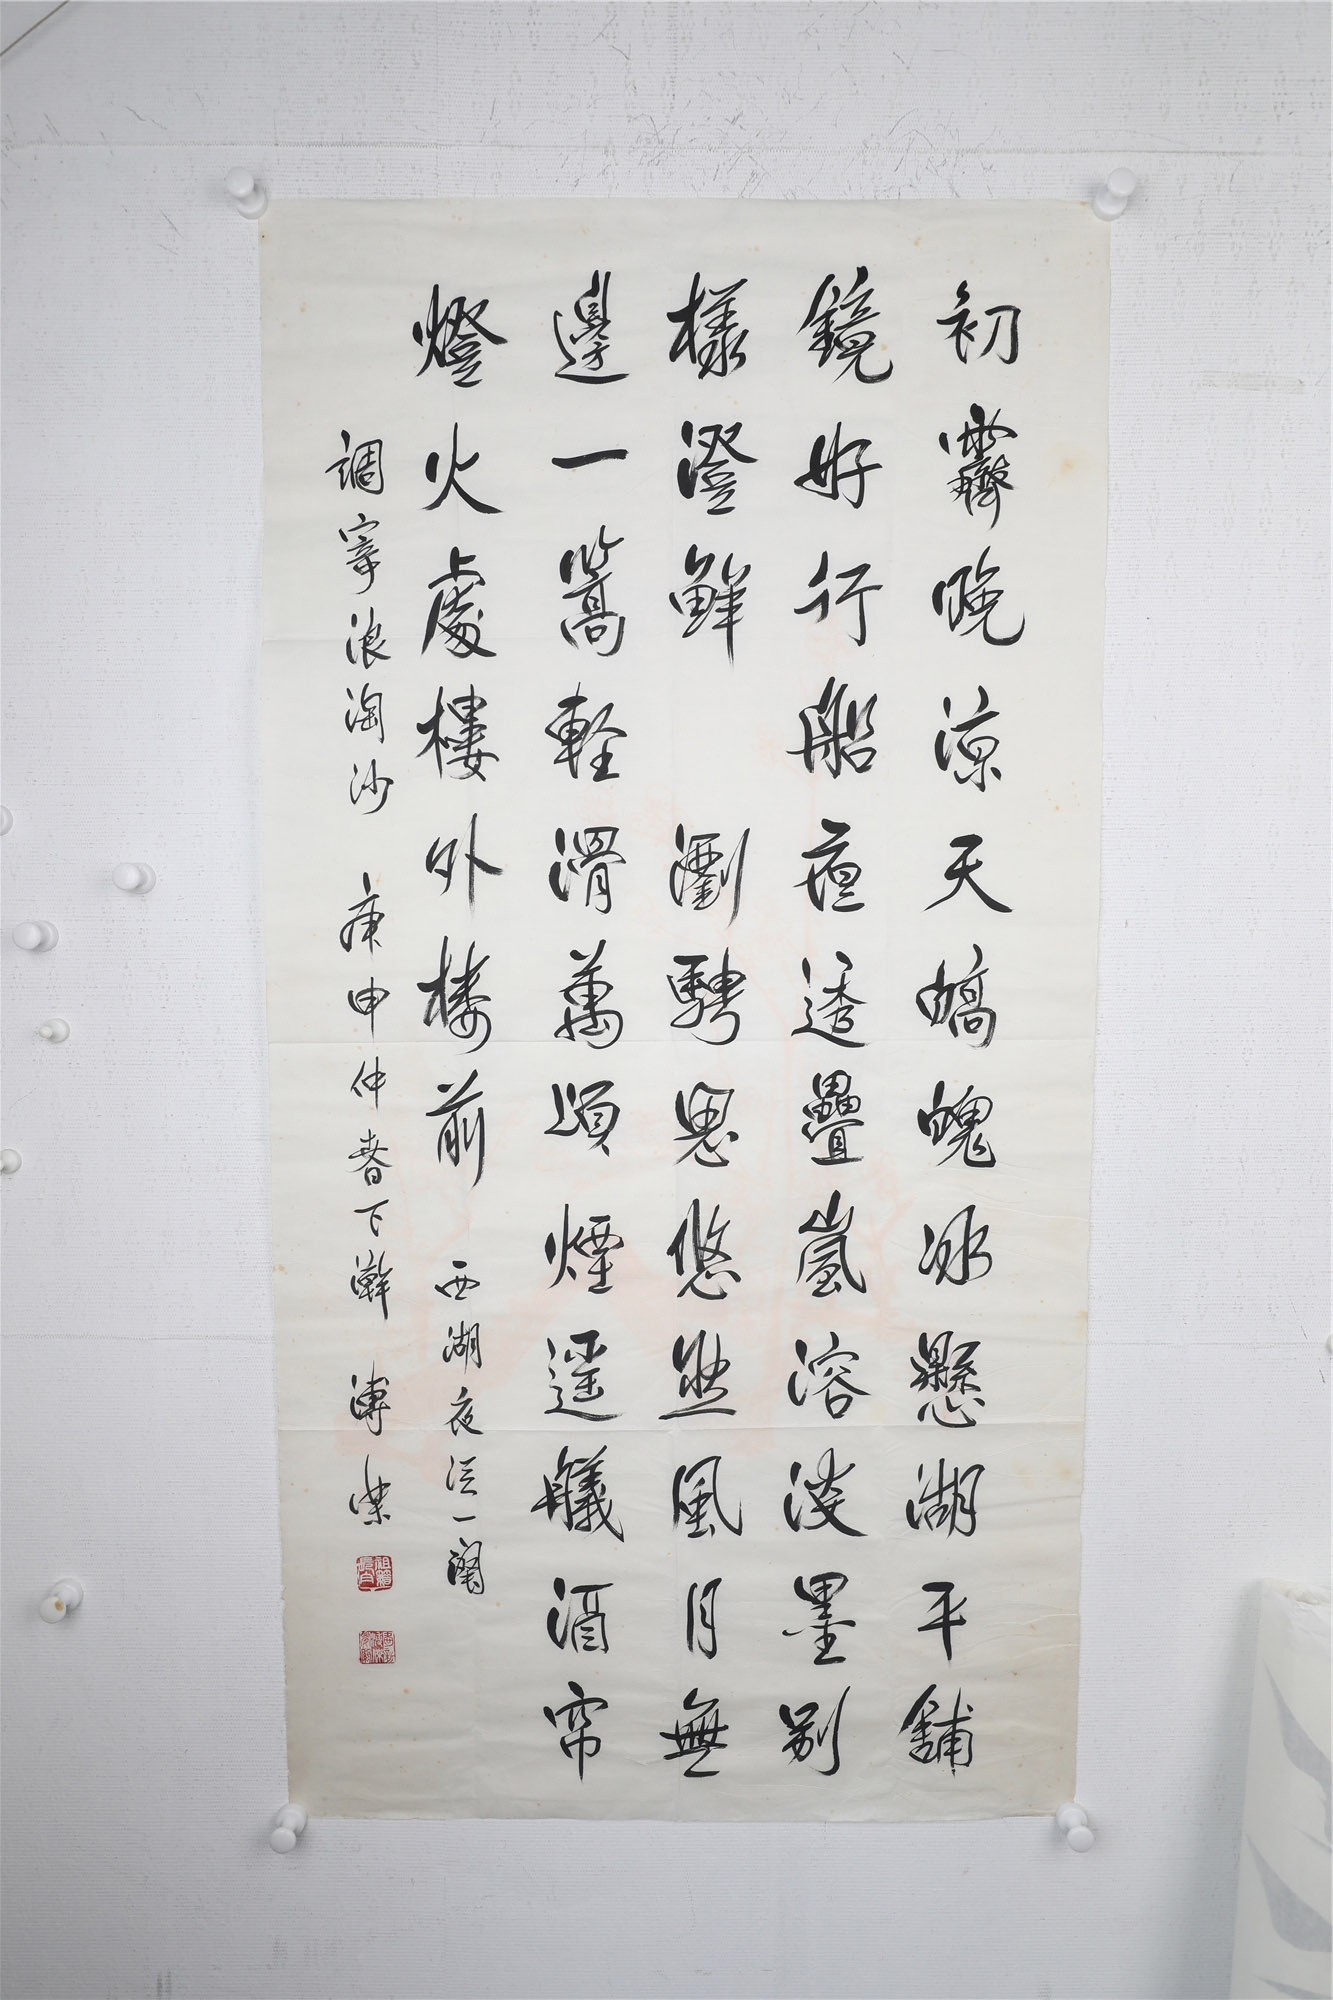 初霽晚涼天皜魄冰懸湖平鋪
鏡好行船夜透疊嵐溶淡墨别
樣澄鮮 瀏騁思悠然風月無
邊一篙輕滑萬頃煙遥艤酒帘
燈火處樓外樓前 西湖夜泛一闋
調寄浪淘沙 庚申仲春下澣 溥傑